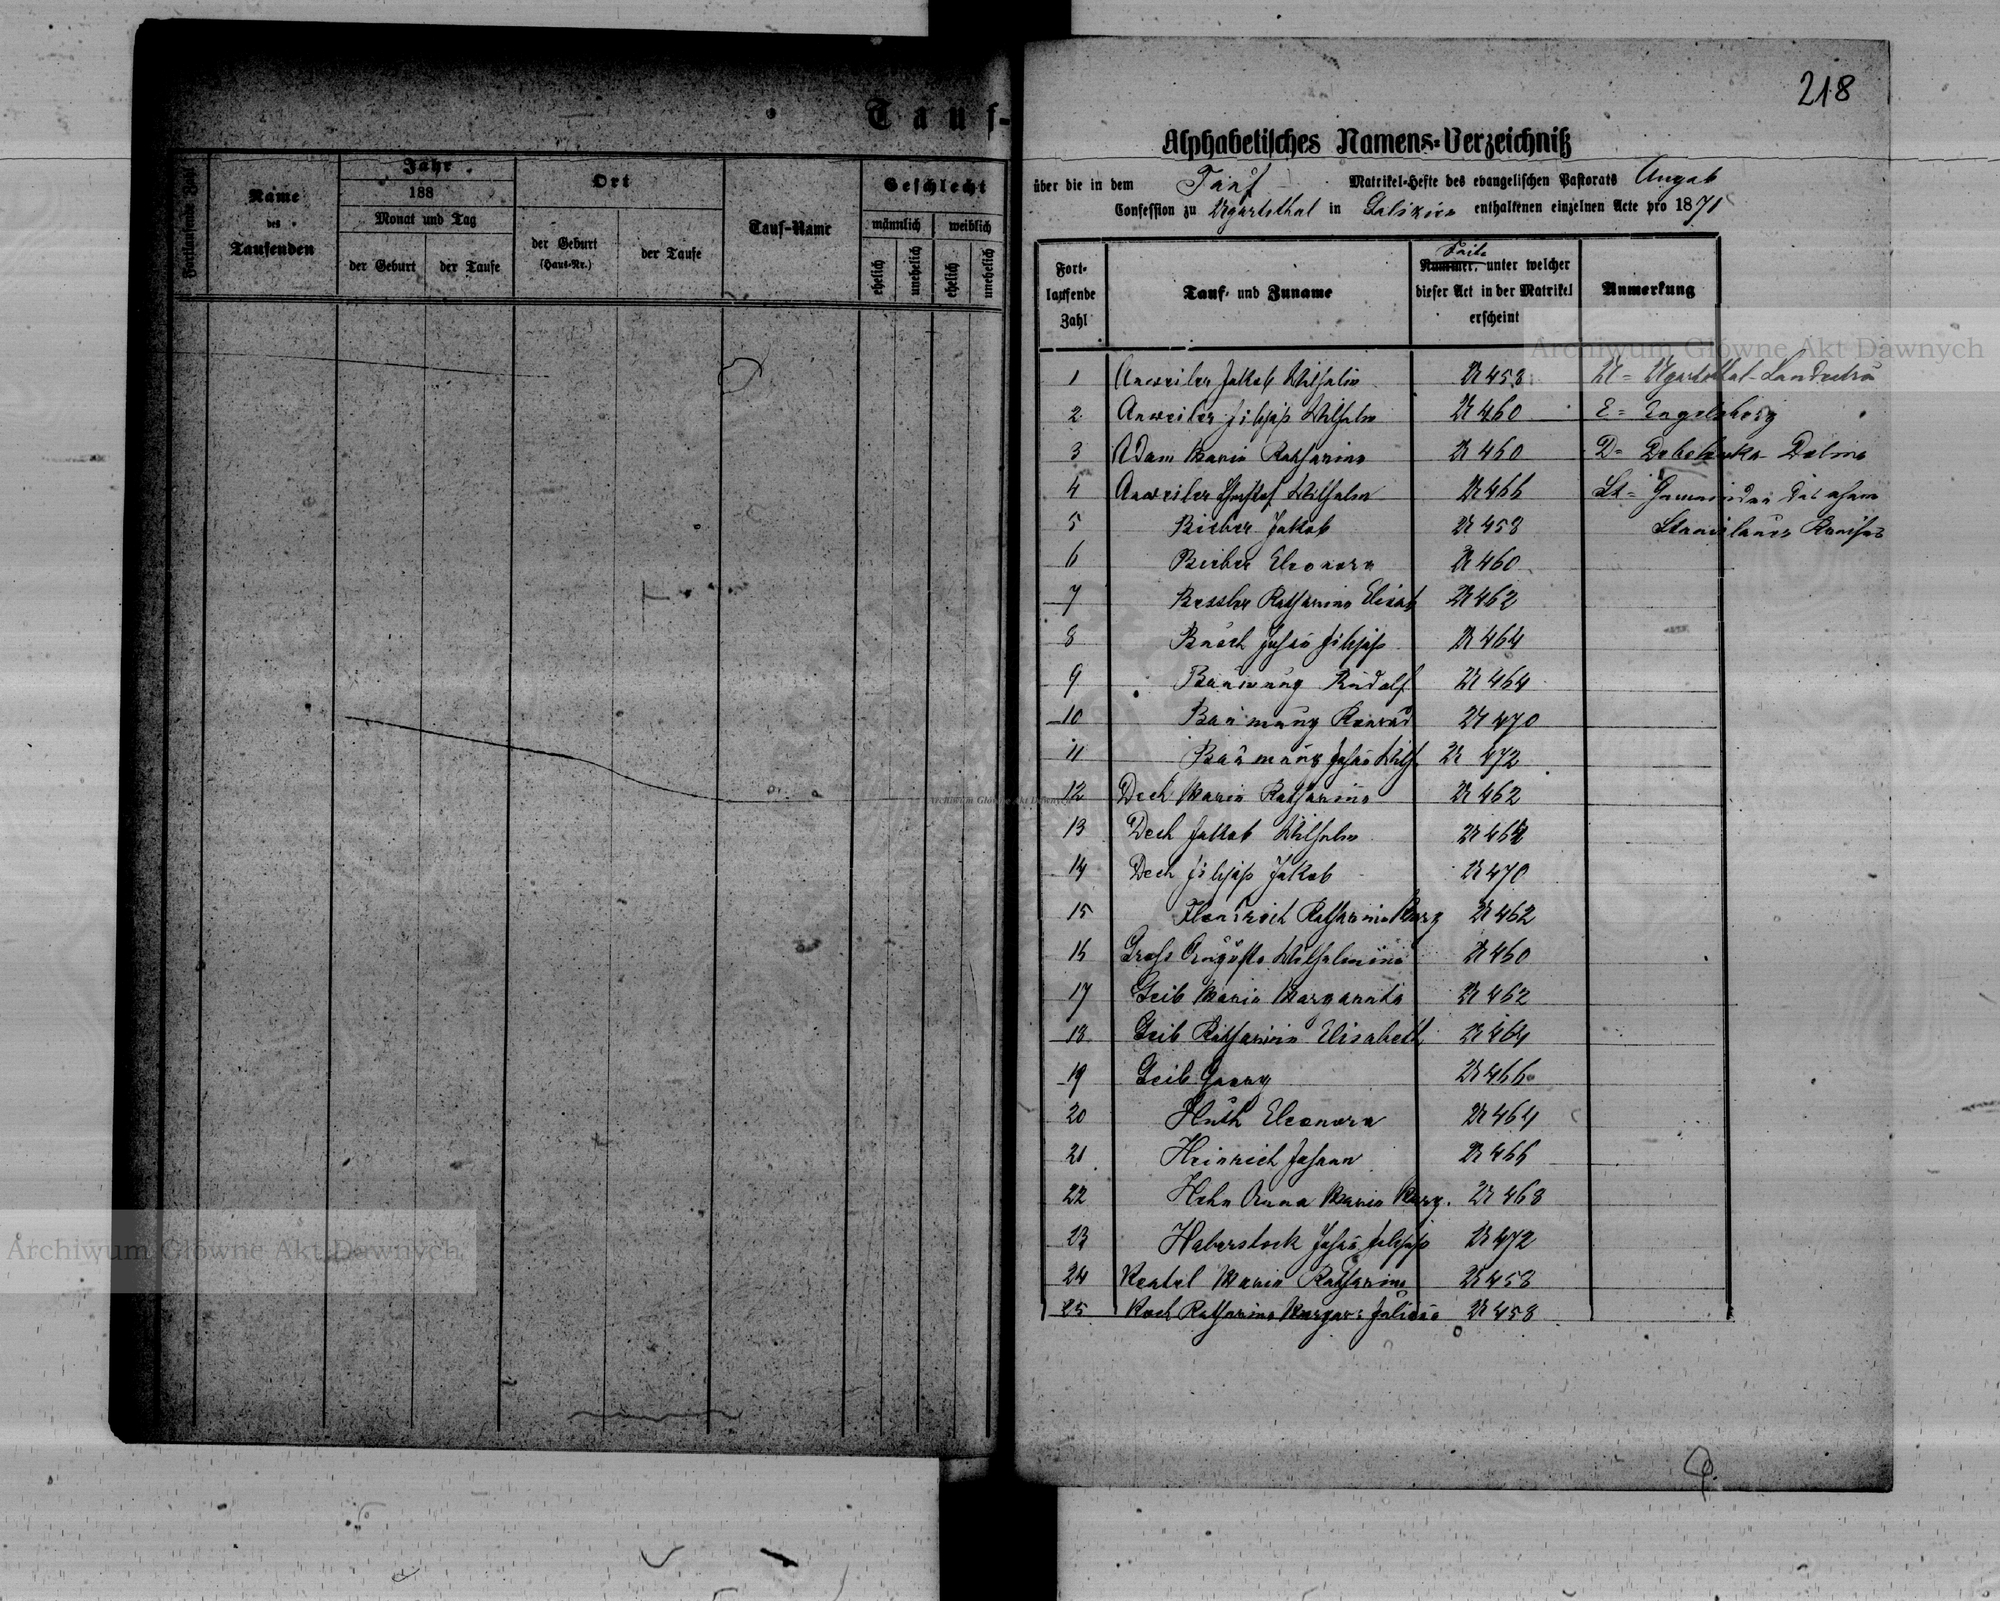 Tauf-
Fortlaufende Zahl
Name
des
Taufenden
Jahr
188
Monat und Tag
der Geburt
der Taufe
Ort
der Geburt
(Haus-Nr.)
der Taufe
Tauf-Name
Geschlecht
männlich
weiblich
ehelich
unehelich
ehelich
unehelich
218
Alphabetisches Namens-Verzeichniß
über die in dem Tauf Matrikel-Hefte des evangelischen Pastorats Augsb
Confession zu Ugartsthal in Galizien enthaltenen einzelnen Acte pro 1871
Fort-
laufende
Zahl
Tauf- und Zuname
Seite
Nummer, unter welcher
dieser Act in der Matrikel
erscheint
Anmerkung
1 Anweiler Jakob Wilhelm U 458 U = Ugartsthal-Landestreu
2 Anweiler Filipp Wilhelm U 460 E = Engelsberg
3 Adam Maria Katharina U 460 D = Debelowka Dolina
4 Anweiler Gustaf Wilhelm U 466 St = Gemeinden
5 Bieber Jakob U 458 Stanislauer Kreises
6 Bieber Eleonora U 460
7 Bessler Katharina Elisab U 462
8 Busch Johan Filipp U 464
9 Baumung Rudolf U 464
10 Baumung Konrad U 470
11 Baumung Johan Wilh U 472
12 Dech Maria Katharina U 462
13 Dech Jakob Wilhelm U 462
14 Dech Filipp Jakob U 470
15 Katharina Marg U 462
16 Gross Augusta Wilhelmina U 460
17 Geib Maria Margaretha U 462
18 Geib Katharina Elisabeth U 464
19 Geib Georg U 466
20 Huth Eleonora U 464
21 Heinrich Johann U 466
22 Hehn Anna Maria Marg. U 468
23 Haberstock Johan Filipp U 472
24 Kentel Maria Katharina U 458
25 Koch Katharina Margar: Juliana U 458
Archiwum Główne Akt Dawnych
Archiwum Główne Akt Dawnych
Archiwum Główne Akt Dawnych